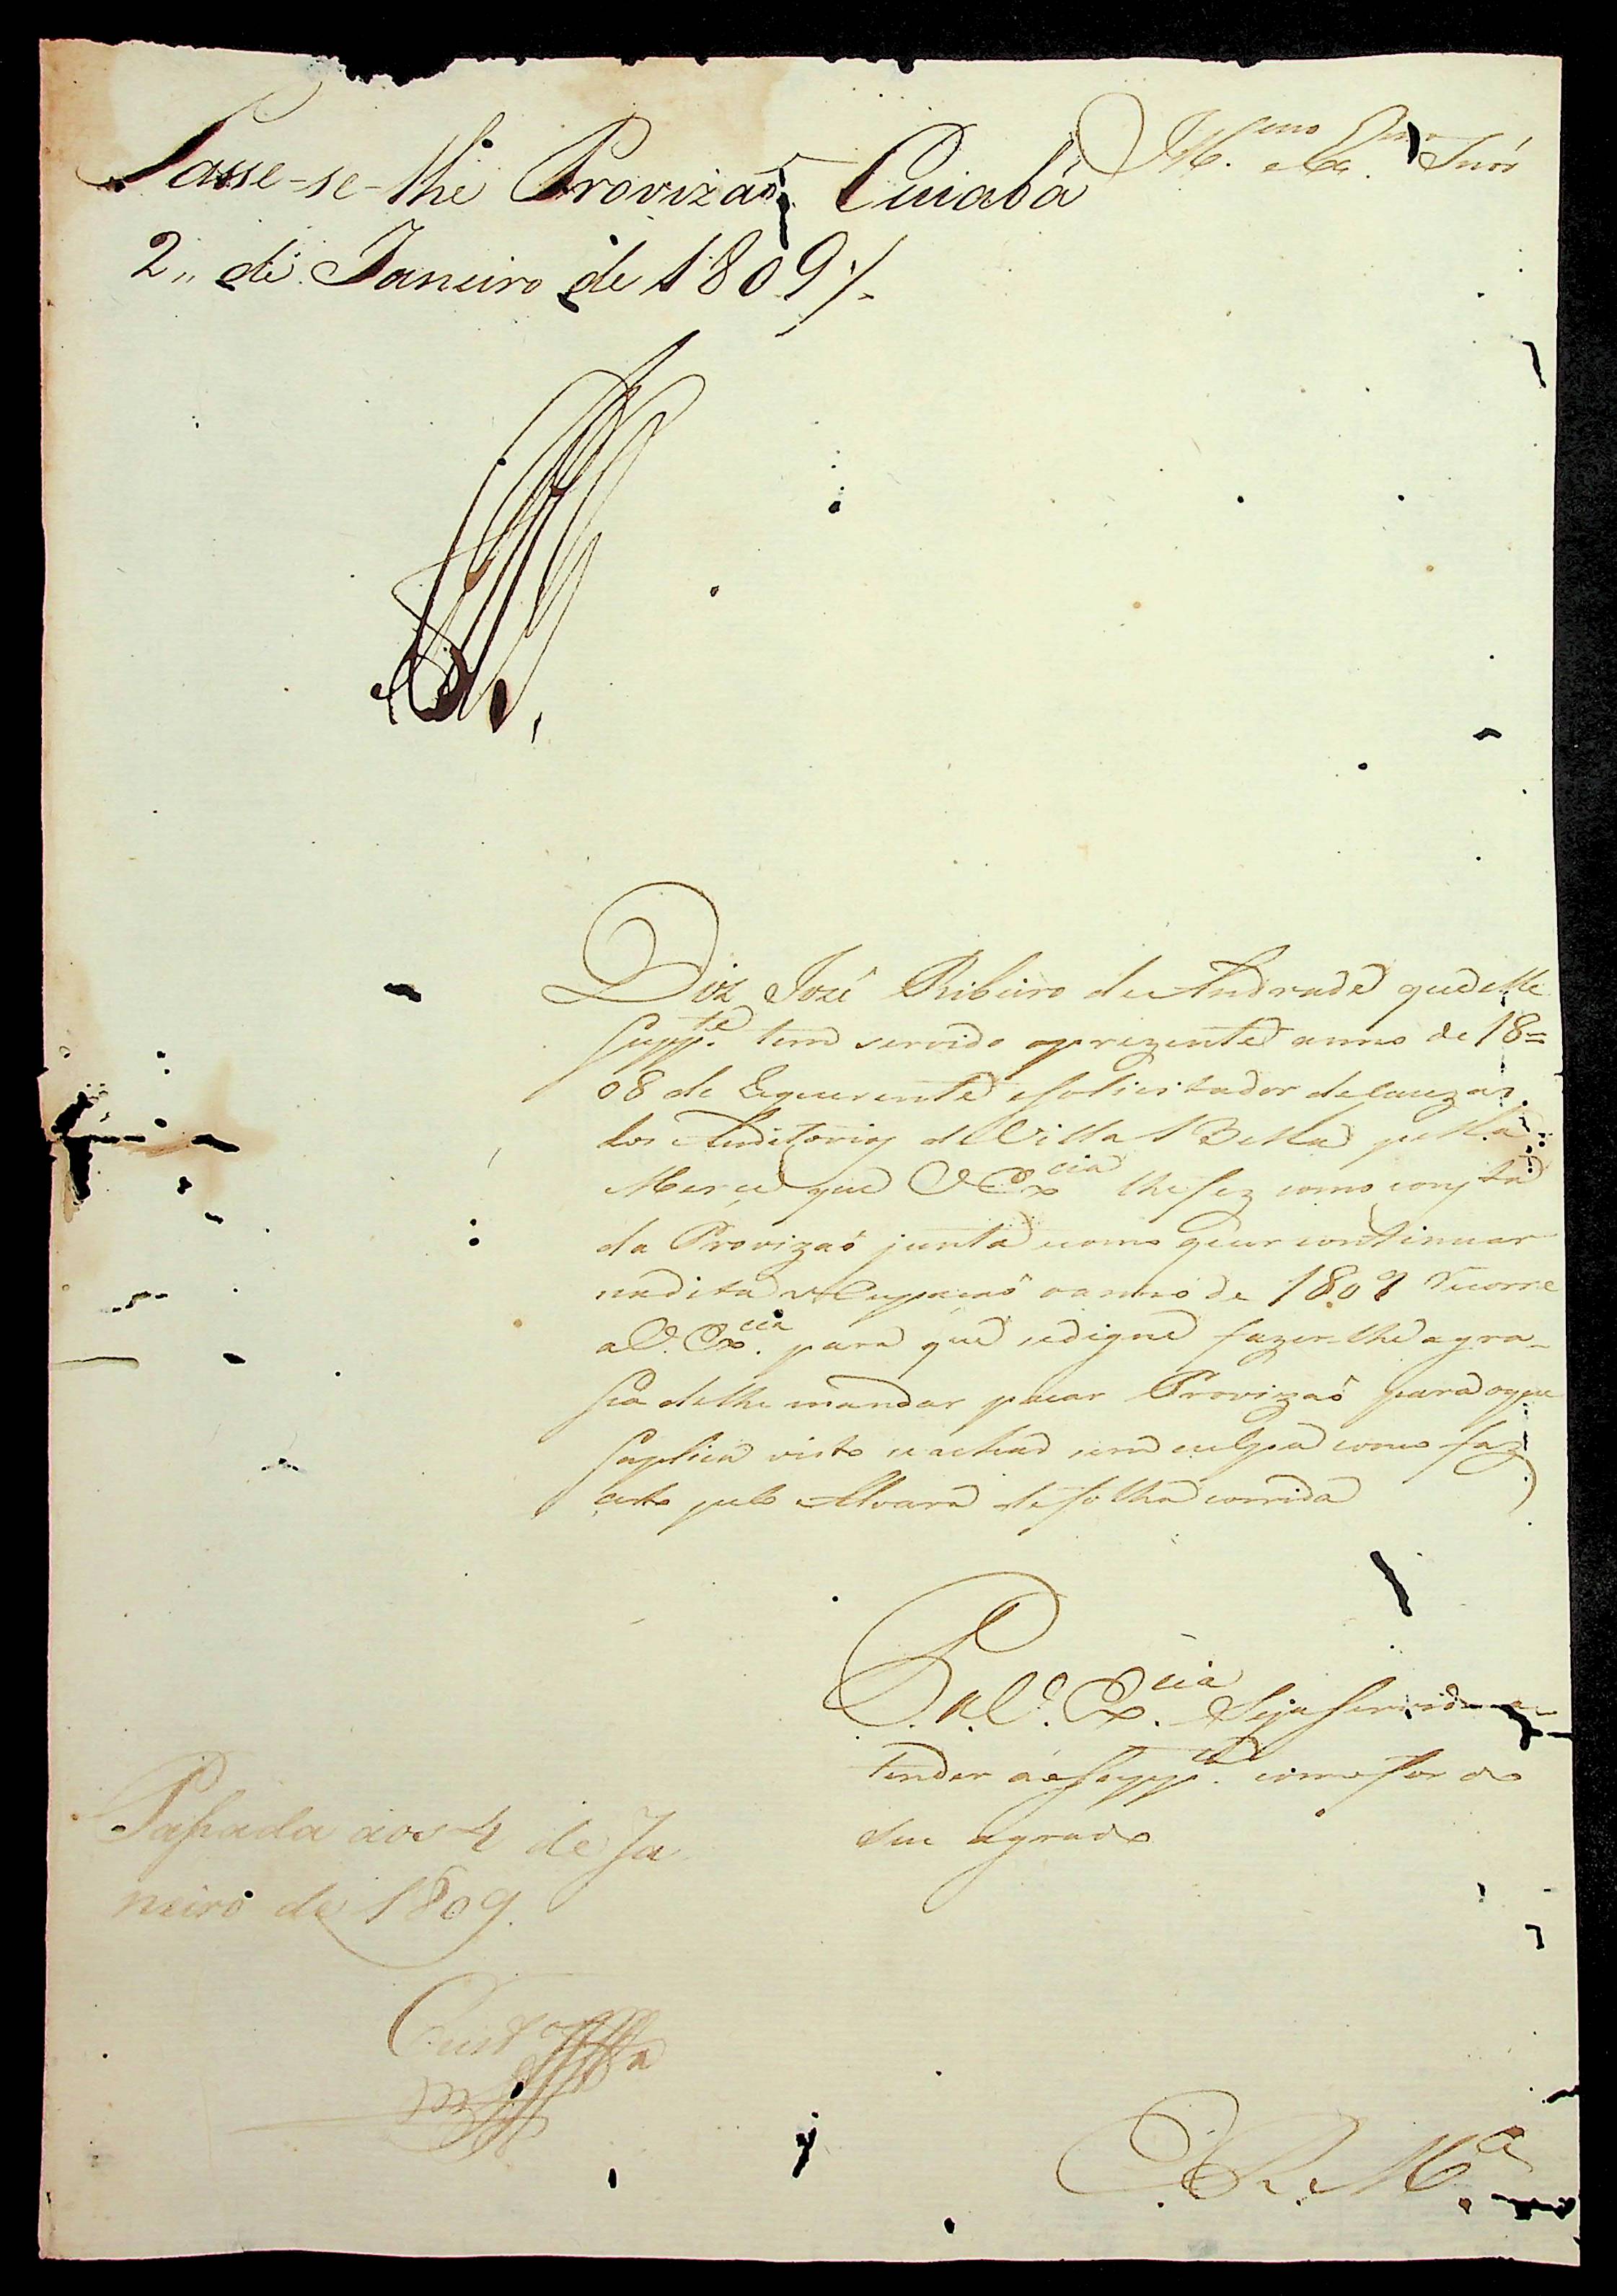 Passe-se-lhe Provizaõ Cuiabá
2,, de Janeiro de 1809 /.
Ill.mo e Ex.mo Snr
Diz José Ribeiro de Andrade que elle
Supp.te tem servido oprezente anno de 18=
08 de Requerente esolicitador decauzas
dos Auditorios deVilla Bella pella
Merce que V. Ex.cia lhefez como consta
da Provizaõ junta ecomo quer continuar
nadita ocupacaõ oanno de 1809 recorre
aV. Ex.cia para que sedigne fazer-lhe agra-
sa delhe mandar pasar Provizaõ para oque
suplica visto seachar sem culpa como faz
certo pelo Alvará defolha corrida
P. a V. Ex.cia Seja Servido a-
tender aoSupp.te como for do
seu agrado
Passada aos 4 de Ja
neiro de 1809.
E. R. M.ce